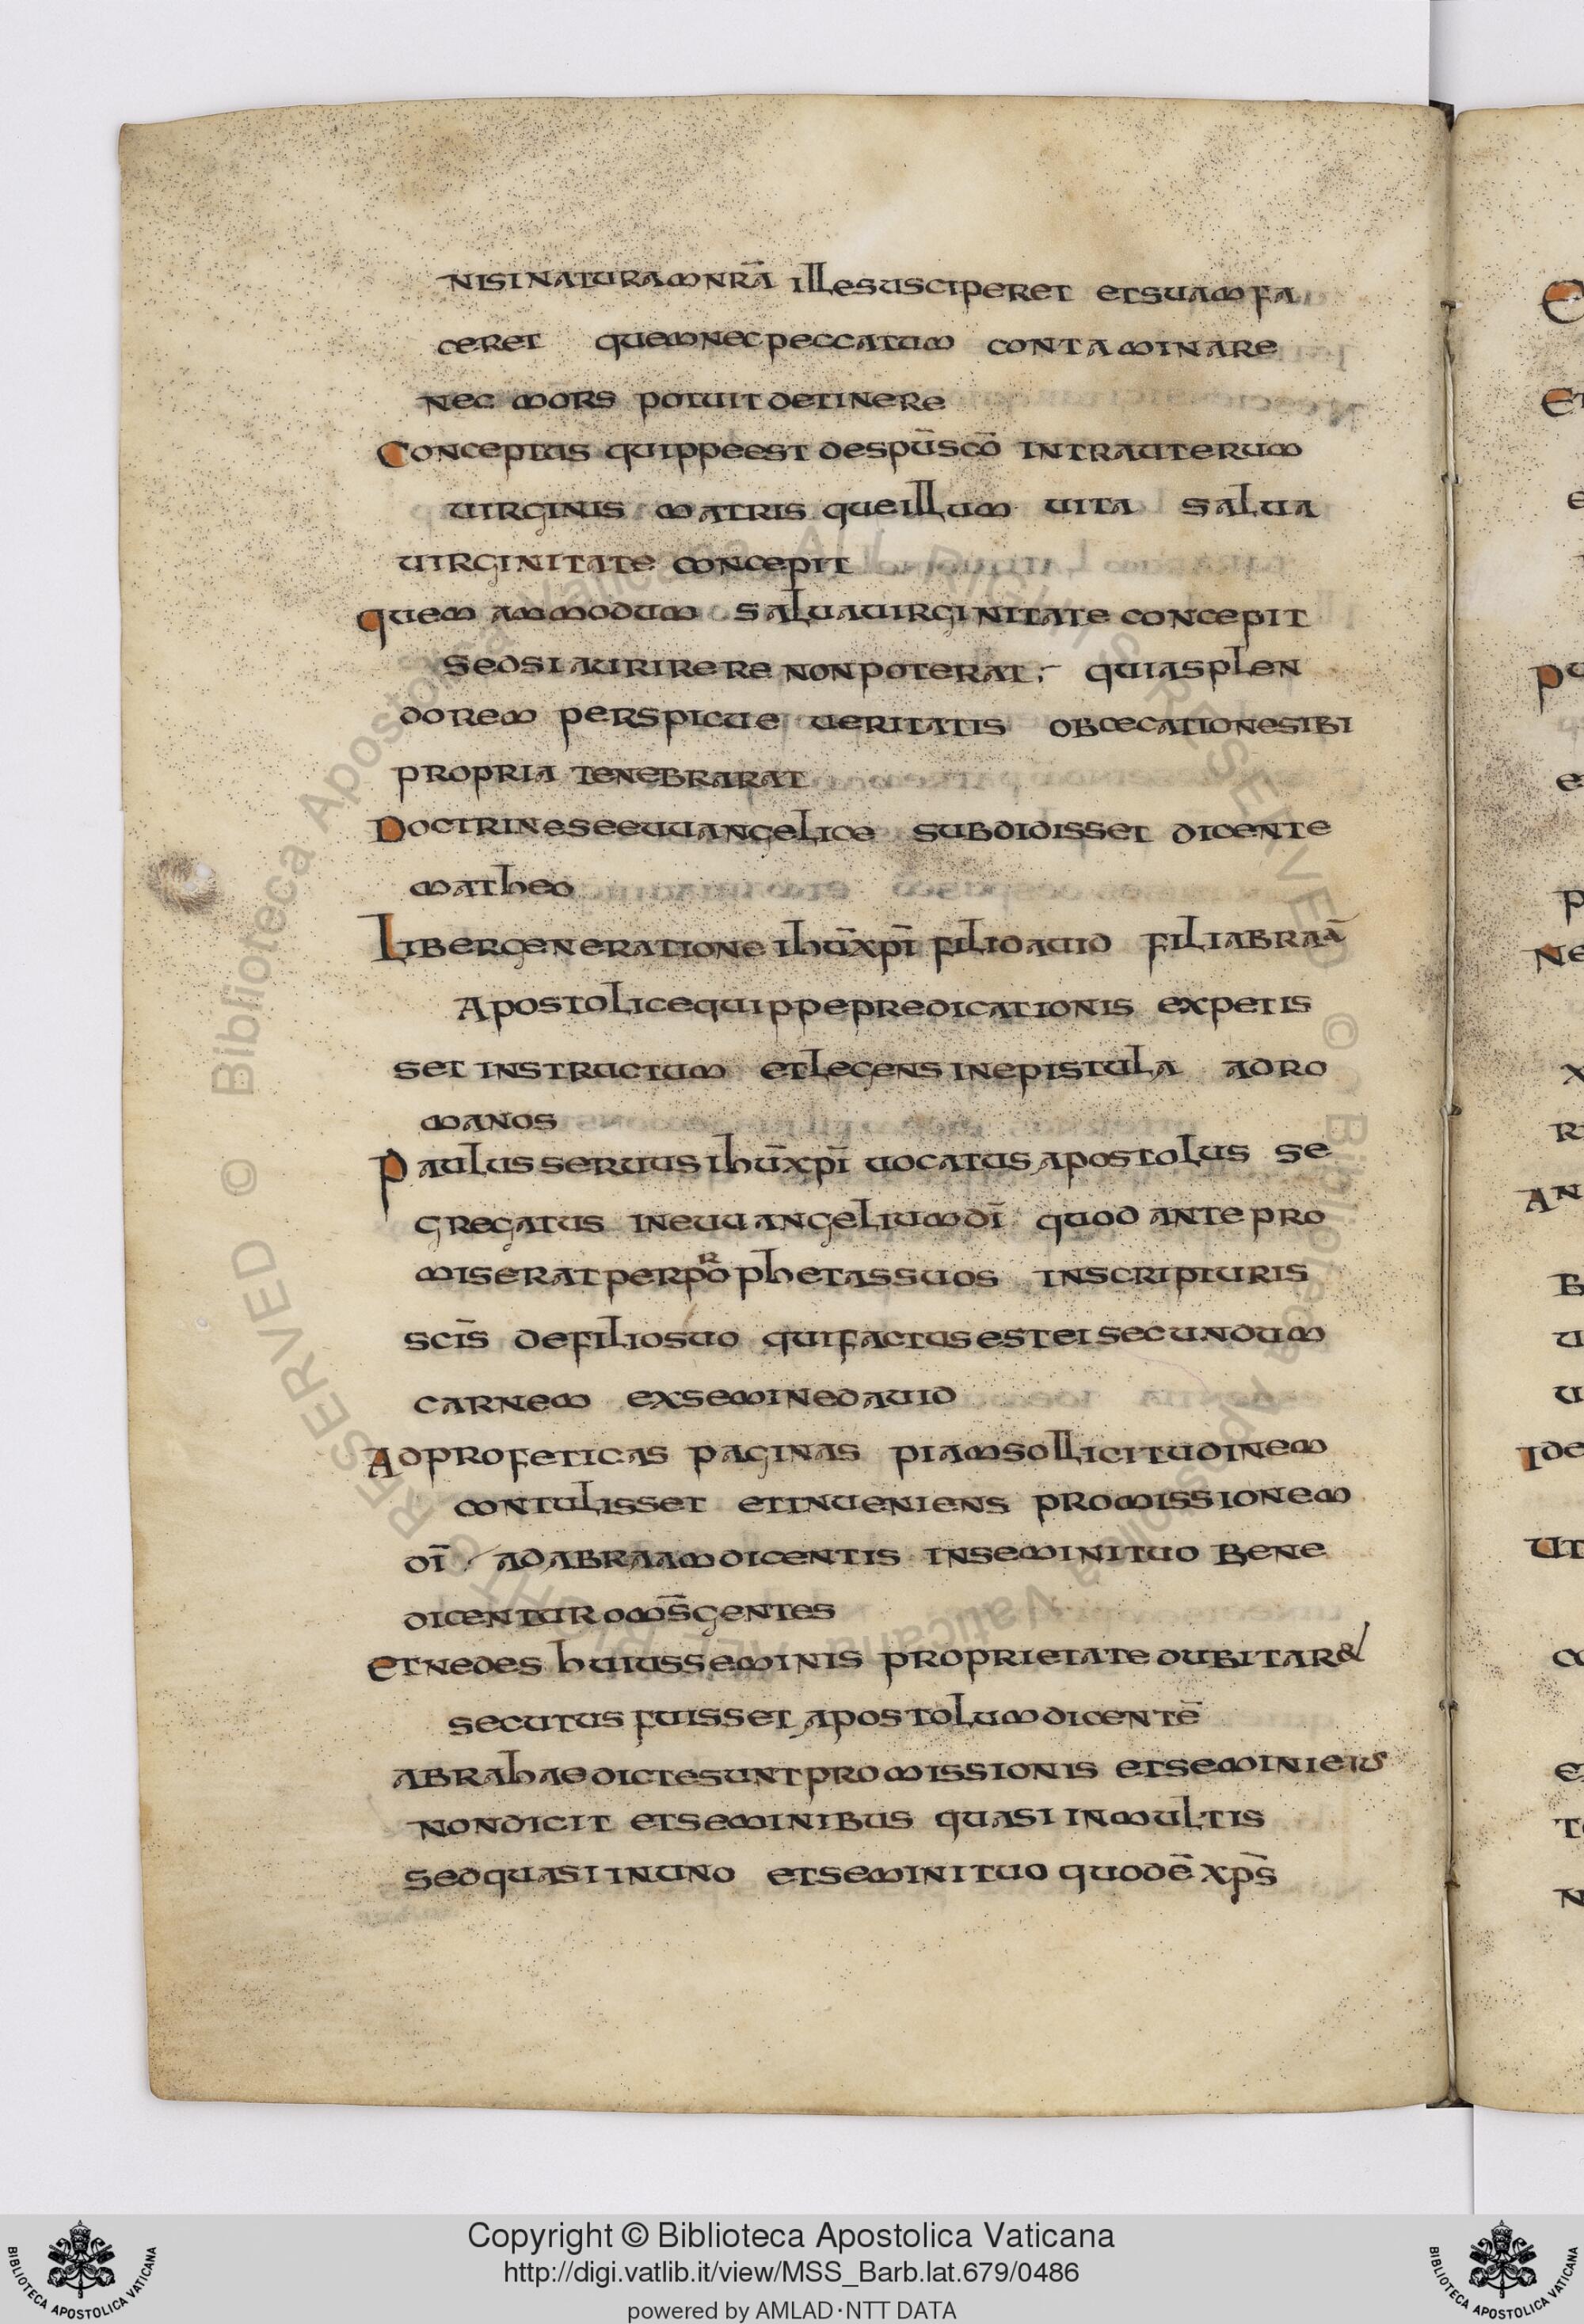 nisi naturam nr̄a ille susciperet et suam fa
ceret quem nec peccatum contaminare
nec mors potuit detinere
Conceptus quippe est de spū scō intra uterum
uirginis matris que illum uita salua
uirginitate concepit
quem ammodum salua uirginitate concepit
sed si aurirere non poterat; quia splen
dorem perspicue ueritatis obcecatione sibi
propria tenebrarat
Doctrine se euuangelice subdidisset dicente
matheo
Liber generatione ihū xpī fili dauid fili abraā
Apostolice quippe predicationis expetis
set instructum et legens in epistula ad ro
manos
Paulus seruus ihū xpī uocatus apostolus se
gregatus in euuangelium dī quod ante pro
miserat per pᴿophetas suos in scripturis
scīs de filio suo qui factus est ei secundum
carnem ex semine dauid
Ad profeticas paginas piam sollicitudinem
contulisset et inueniens promissionem
dī ad abraam dicentis in semini tuo bene
dicentur oms̄ gentes
et ne des huius seminis proprietate dubitar&
secutus fuisset apostolum dicentē
abrahae dicte sunt promissionis et semini eius
non dicit et seminibus quasi in multis
sed quasi in uno et semini tuo quod ē xps̄
© Biblioteca Apostolica Vaticana ALL RIGHTS RESERVED © Biblioteca Apostolica Vaticana ALL RIGHTS RESERVED
Copyright © Biblioteca Apostolica Vaticana
http://digi.vatlib.it/view/MSS_Barb.lat.679/0486
powered by AMLAD·NTT DATA
BIBLIOTECA APOSTOLICA VATICANA
BIBLIOTECA APOSTOLICA VATICANA